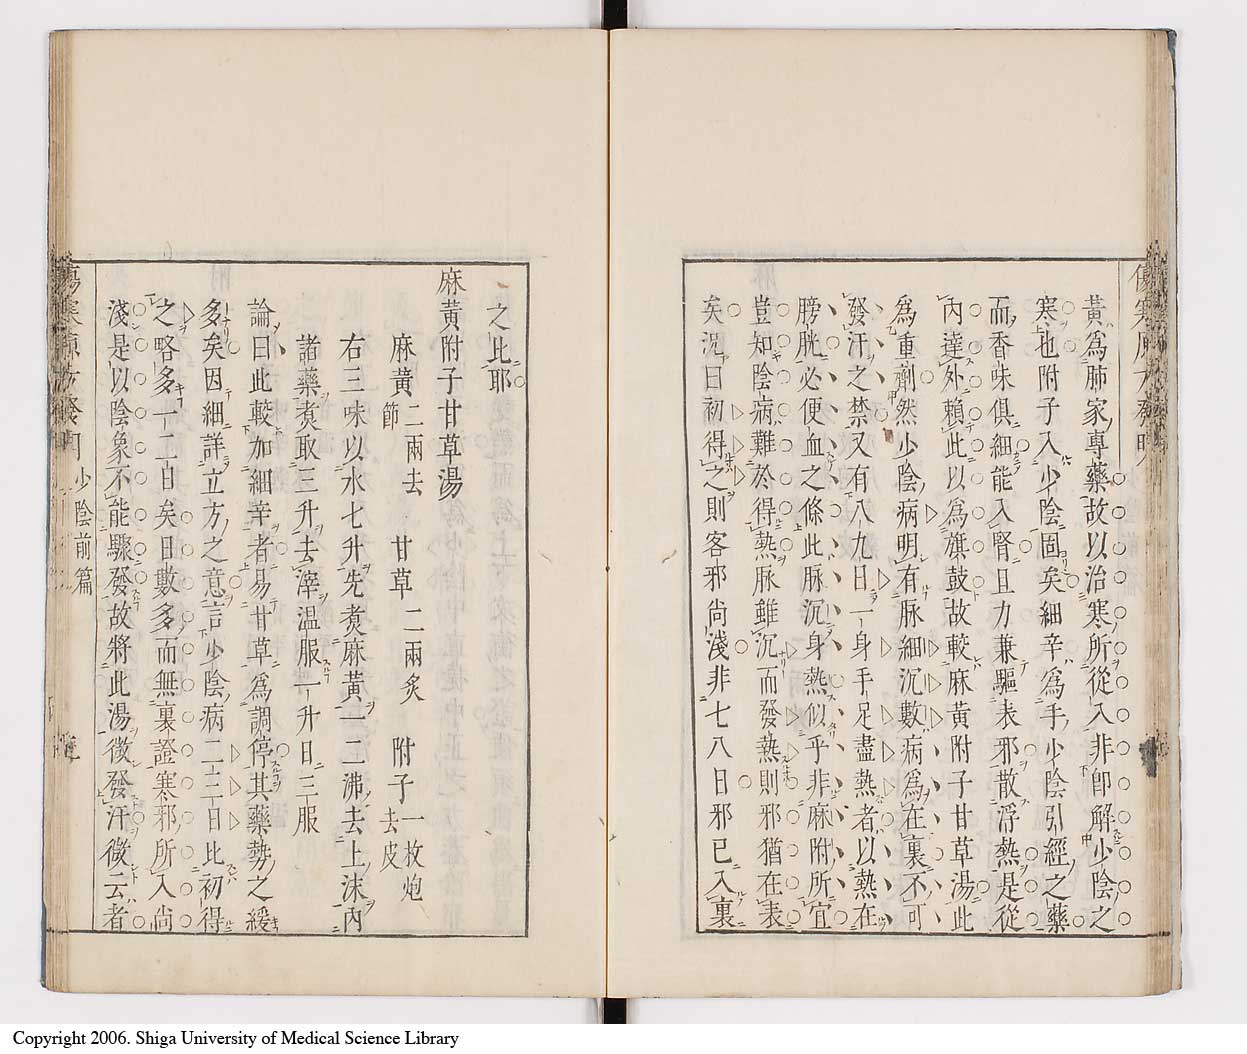 黃爲肺家專藥故以治寒所從入非卽解少陰之
寒也附子入少陰固矣細辛爲手少陰引經之藥
而香味俱細能入腎且力兼驅表邪散浮熱是從
內達外賴此以爲旗鼓故較麻黃附子甘草湯此
爲重劑然少陰病明有脉細沉數病爲在裏不可
發汗之禁又有八九日一身手足盡熱者以熱在
膀胱必便血之條此脉沉身熱似乎非麻附所宜
豈知陰病難於得熱脉雖沉而發熱則邪猶在表
矣況曰初得之則客邪尚淺非七八日邪已入裏
之比耶
麻黃附子甘草湯
麻黃二兩去節 甘草二兩炙 附子一枚炮去皮
右三味以水七升先煑麻黃一二沸去上沫內
諸藥煑取三升去滓温服一升日三服
論曰此較加細辛者易甘草爲調停其藥勢之緩
多矣因細詳立方之意言少陰病二三日比初得
之略多一二日矣日數多而無裏證寒邪所入尚
淺是以陰象不能驟發故將此湯微發汗微云者
少陰前篇
Copyright 2006. Shiga University of Medical Science Library